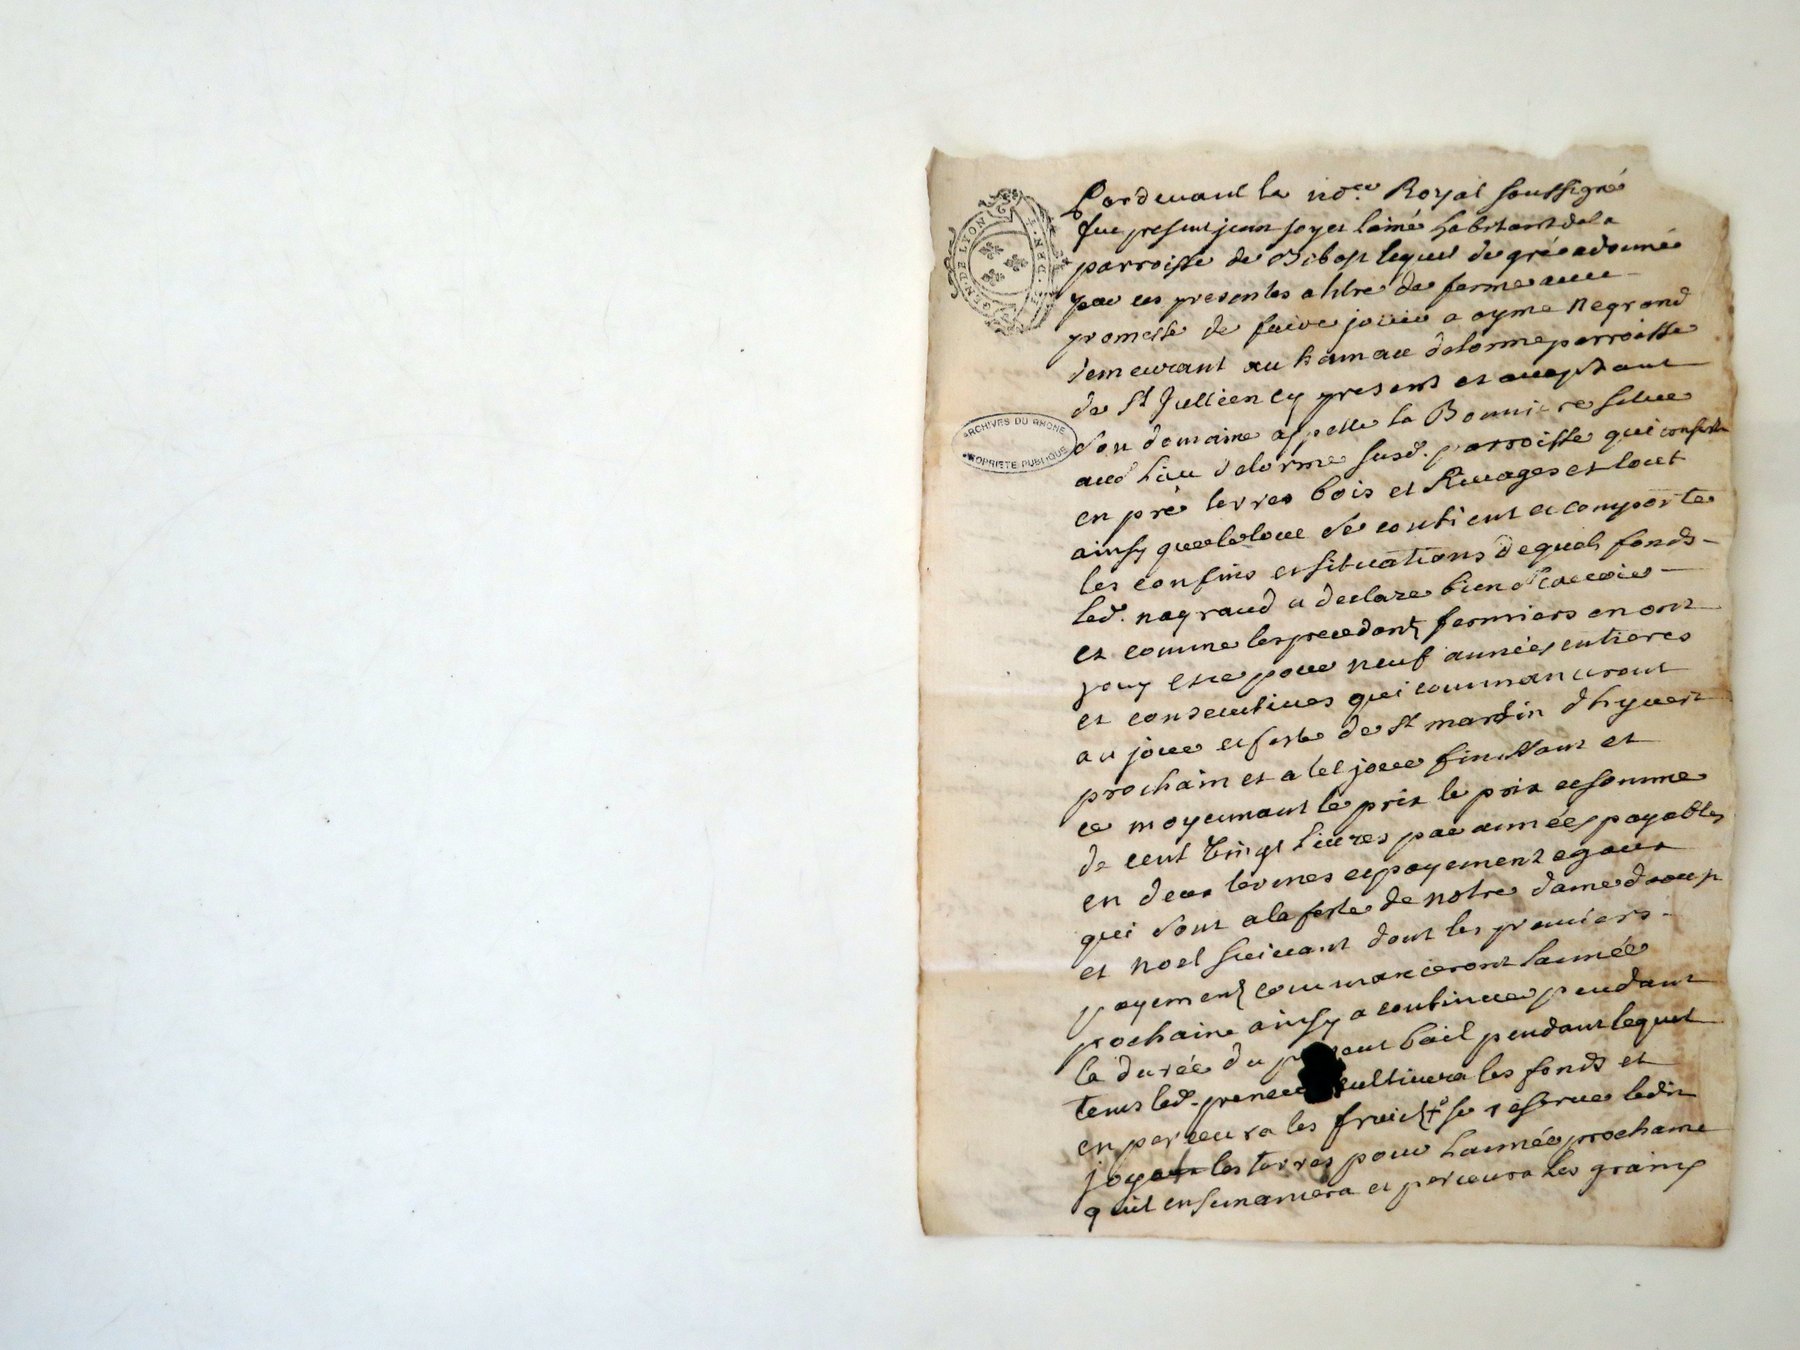 GEN. DE LYON
ARCHIVES DU RHONE
PROPRIETE PUBLIQUE
Pardevant le no.re Royal soussigné
fut present jean joyet lainé habitant de la
parroisse de Bibost lequel de gré a donné
par ces presentes a titre de ferme avec
promesse de faire jouir a ayme Negrand
demeurant au hameau delorme parroisse
de St Jullien cy present et acceptant
son domaine appellé la Bonniere situe
aud. lieu delorme susd. parroisse qui consiste
en pré terres bois et Rivages et tout
ainsy que le tout se contient et comporte
les confins et situations dequels fonds
led. negrand a declaré bien scavoir
et comme les precedents fermiers en ont
jouy et ce pour neuf années entieres
et consecutives qui commanceront
au jour et feste de St martin d'hyvert
prochain et a tel jour finissant et
ce moyennant le prix le prix et somme
de cent vingt livres par années payables
en deux termes et payement egaux
qui sont a la feste de notre dame daoust
et noel suivant dont les premiers
payements commanceront lannée
prochaine ainsy a continuer pendant
la durée du present bail pendant lequel
tems led. preneur cultivera les fonds et
en percevra les fruits se reserve ledit
joyet les terres pour lannée prochaine
quil ensemancera et percevra les grains